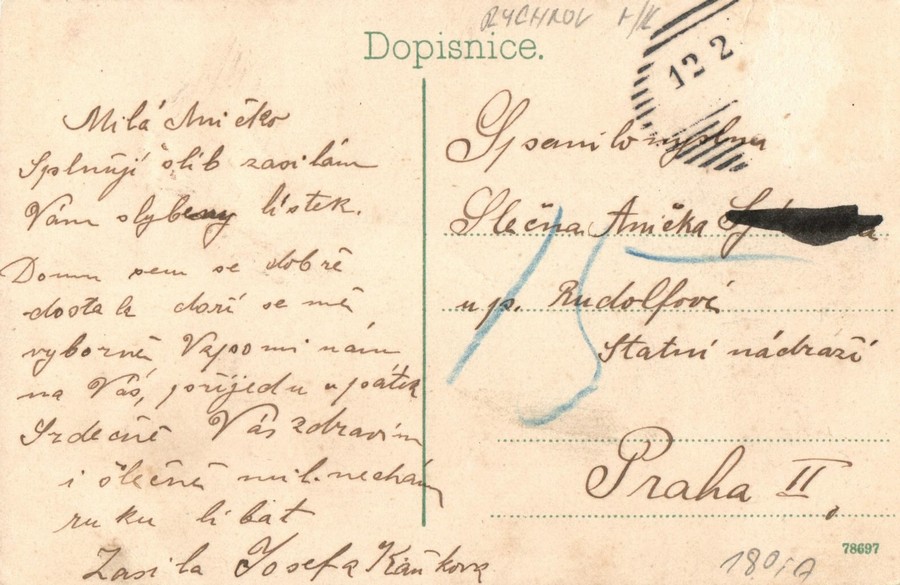 RYCHNOV
Dopisnice.
12 2
Milá Aničko
Splnůjí slib zasilám
Vám slybeny lístek.
Domu sem se dobrě
dostala daří se mě
vyborně Vzpomi nám
na Vás, přijedu v pátek
Srdečně Vás zdravím
i slečně mil. nechám
ruku líbat
Zasila Josefa
Slečna Anička
u p. Rudolfové
Statní nádraží
Praha II
15
78697